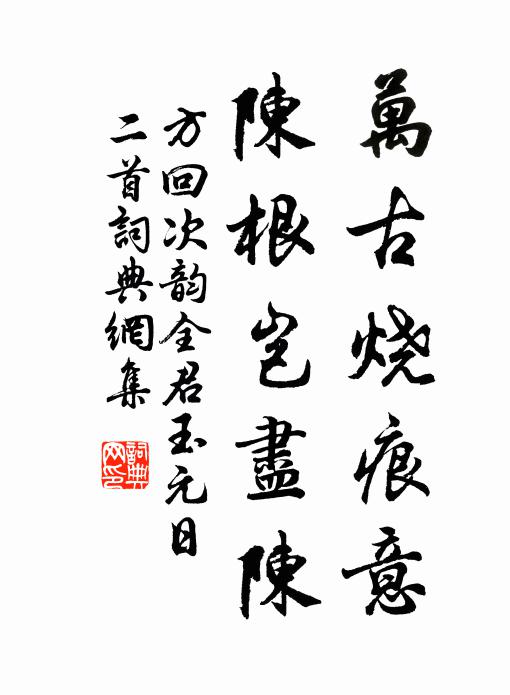 萬古烧痕意
陳根岂盡陳
方回次韵全君玉元日
二首詞典網集
詞典网印